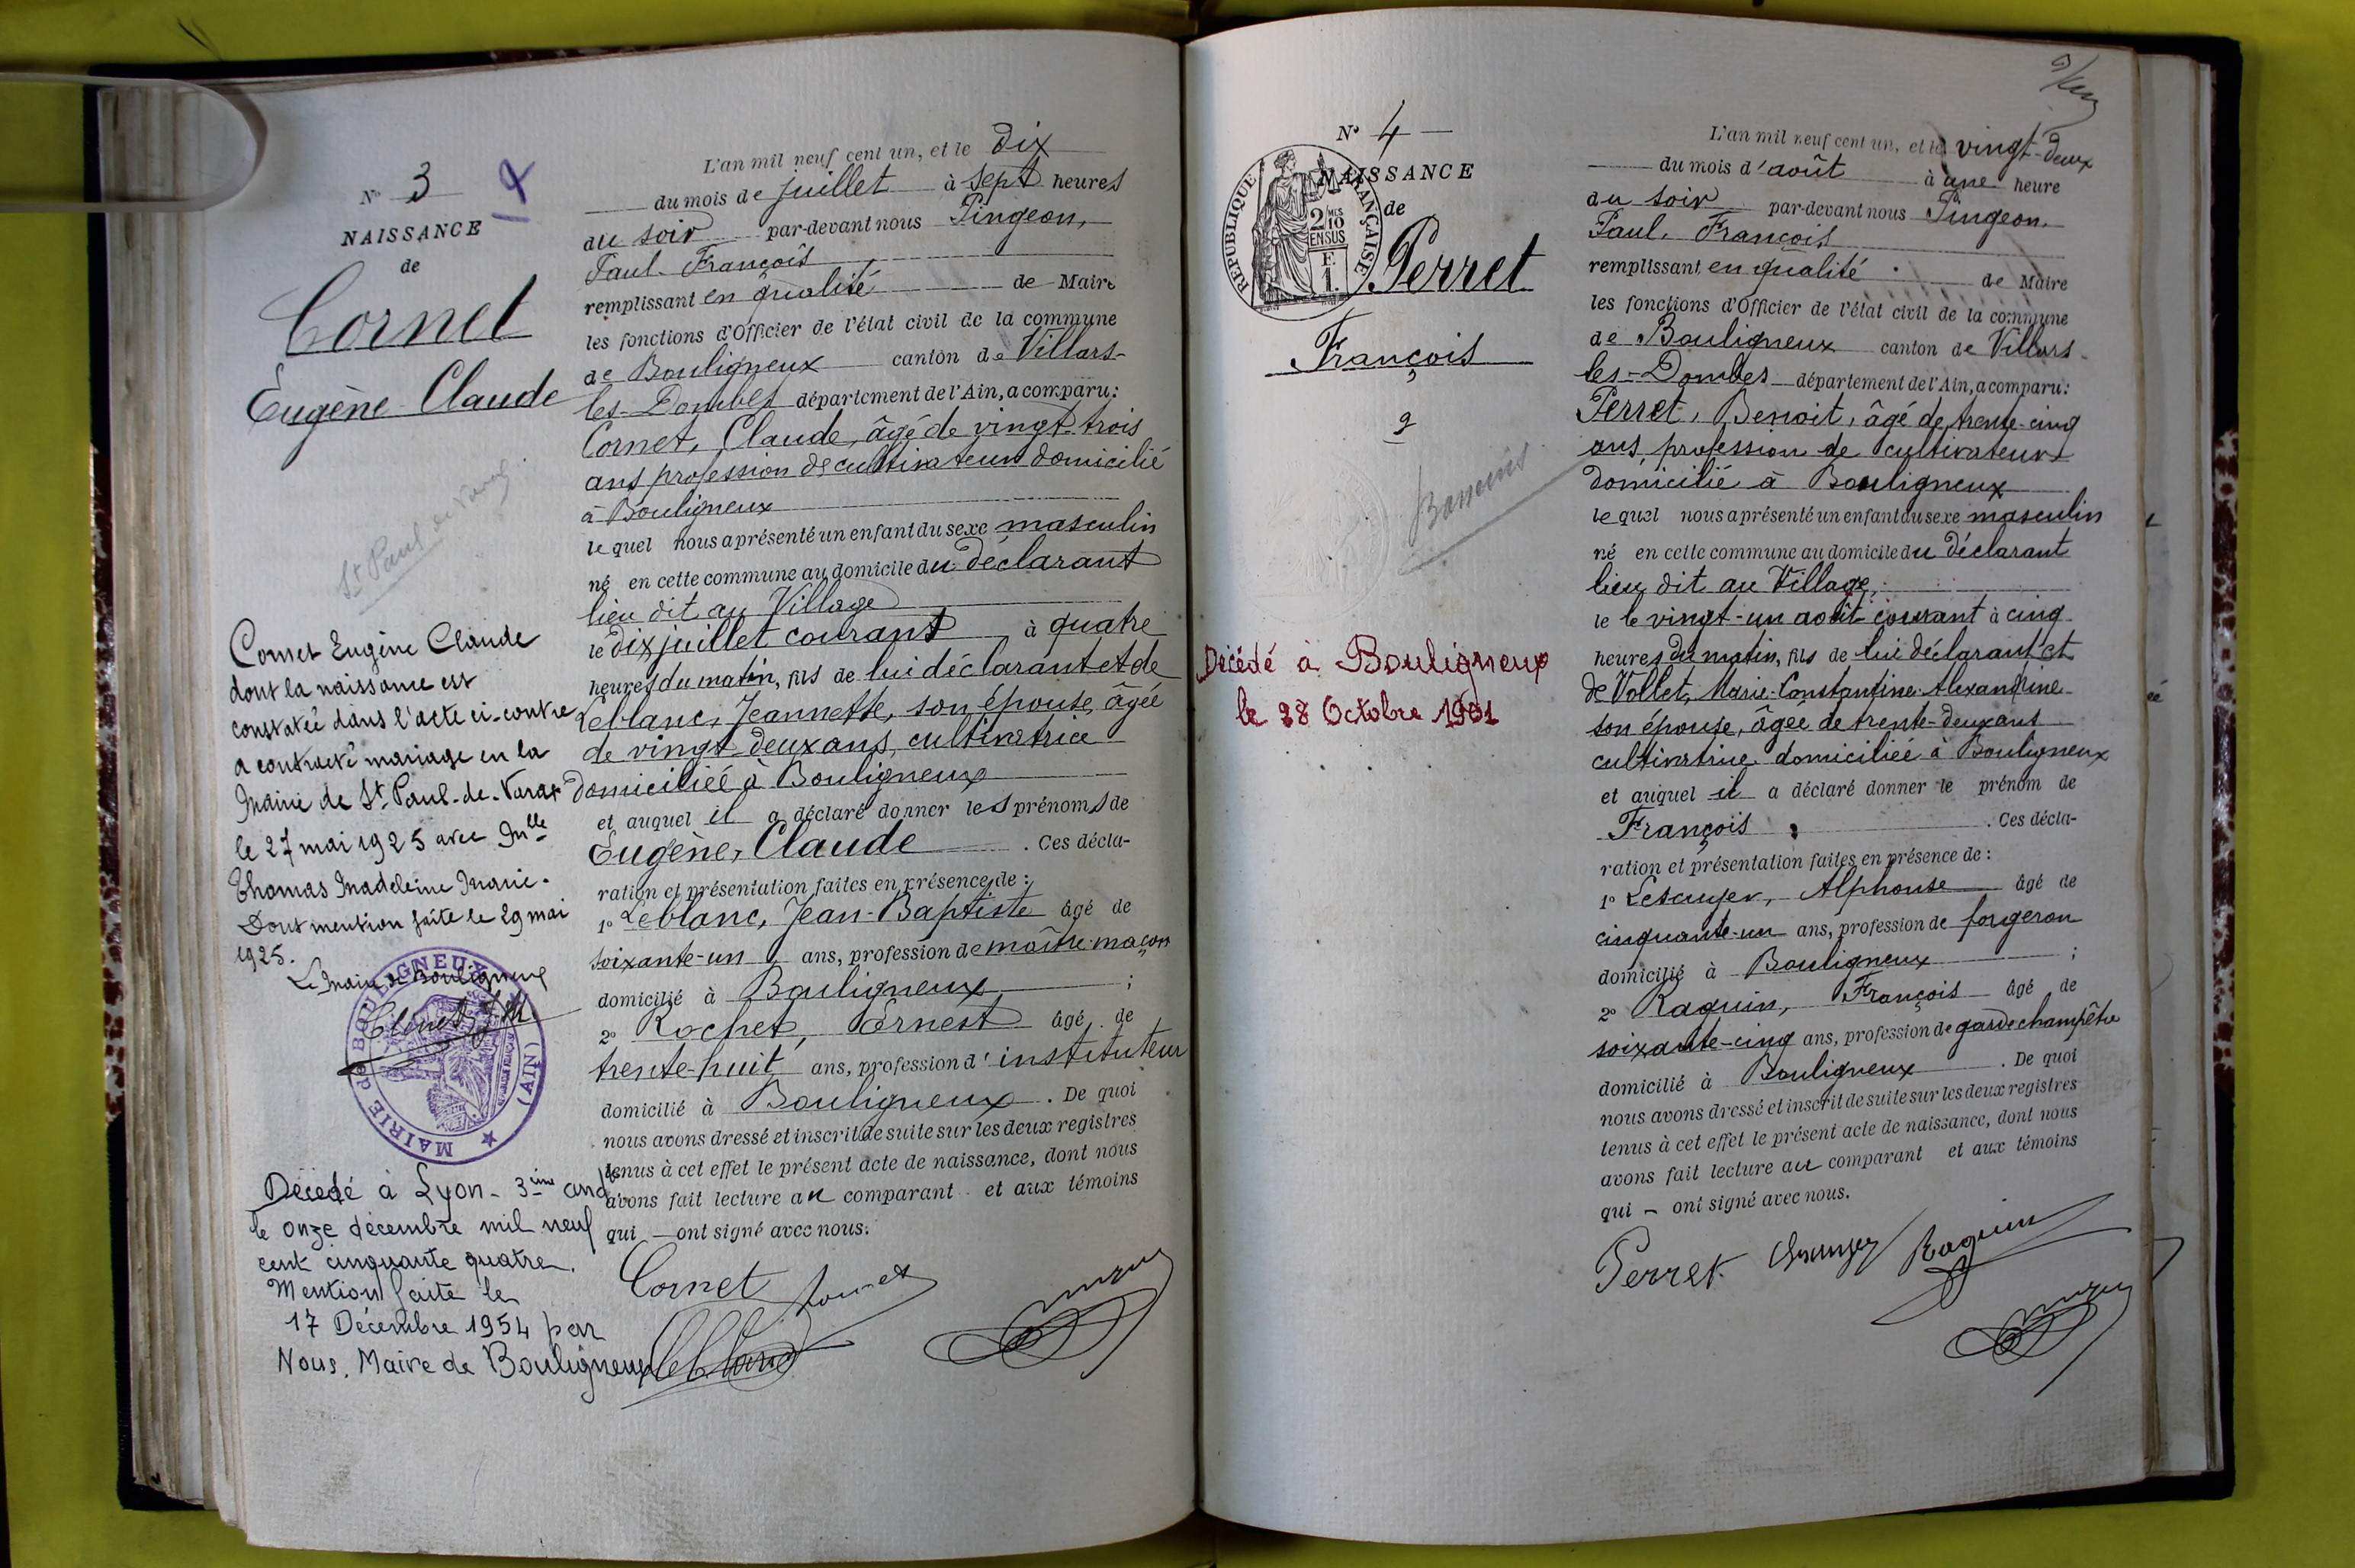 N° 3
NAISSANCE
de
Cornet
Eugène Claude
St Paul de Varax
Cornet Eugène Claude
dont la naissance est
constatée dans l'acte ci-contre
a contracté mariage en la
Mairie de St. Paul-de-Varax
le 27 mai 1925 avec Mlle
Thomas Madeleine Marie.
Dont mention faite le 29 mai
1925.
Le Maire de Bouligneux
MAIRIE de BOULIGNEUX (AIN)
Décédé à Lyon - 3ème arrdt
le onze décembre mil neuf
cent cinquante quatre.
Mention faite le
17 Décembre 1954 par
Nous, Maire de Bouligneux
L'an mil neuf cent un, et le dix
du mois de juillet à sept heures
du soir par-devant nous Pingeon,
Paul François
remplissant en qualité de Maire
les fonctions d'Officier de l'état civil de la commune
de Bouligneux canton de Villars-
les-Dombes département de l'Ain, a comparu:
Cornet, Claude, âgé de vingt-trois
ans profession de cultivateur domicilié
à Bouligneux
lequel nous a présenté un enfant du sexe masculin
né en cette commune au domicile du déclarant
lieu dit au Village
le dix juillet courant à quatre
heures du matin, fils de lui déclarant et de
Leblanc, Jeannette, son épouse, âgée
de vingt-deux ans, cultivatrice
domiciliée à Bouligneux
et auquel il a déclaré donner les prénoms de
Eugène, Claude . Ces décla-
ration et présentation faites en présence de :
1° Leblanc, Jean-Baptiste âgé de
soixante-un ans, profession de maître-maçon
domicilié à Bouligneux ;
2° Rochet, Ernest âgé de
trente-huit ans, profession d'instituteur
domicilié à Bouligneux . De quoi
nous avons dressé et inscrit de suite sur les deux registres
tenus à cet effet le présent acte de naissance, dont nous
avons fait lecture au comparant et aux témoins
qui — ont signé avec nous.
Cornet
Leblanc
N° 4
NAISSANCE
de
REPUBLIQUE FRANÇAISE
2/10 MES
EN SUS
F.
1.
Perret
François
2
Décédé à Bouligneux
le 28 Octobre 1901
L'an mil neuf cent un, et le vingt-deux
du mois d'août à une heure
du soir par-devant nous Pingeon,
Paul, François
remplissant en qualité de Maire
les fonctions d'Officier de l'état civil de la commune
de Bouligneux canton de Villars-
les-Dombes département de l'Ain, a comparu:
Perret, Benoit, âgé de trente-cinq
ans, profession de cultivateur
domicilié à Bouligneux
lequel nous a présenté un enfant du sexe masculin
né en cette commune au domicile du déclarant
lieu dit au Village,
le le vingt-un août courant à cinq
heures du matin, fils de lui déclarant et
de Vollet, Marie-Constantine-Alexandrine
son épouse, âgée de trente-deux ans
cultivatrice domiciliée à Bouligneux
et auquel il a déclaré donner le prénom de
François . Ces décla-
ration et présentation faites en présence de :
1° Lescuyer, Alphonse âgé de
cinquante-un ans, profession de forgeron
domicilié à Bouligneux ;
2° Raquin, François âgé de
soixante-cinq ans, profession de garde champêtre
domicilié à Bouligneux . De quoi
nous avons dressé et inscrit de suite sur les deux registres
tenus à cet effet le présent acte de naissance, dont nous
avons fait lecture au comparant et aux témoins
qui — ont signé avec nous.
Perret Lescuyer Raquin